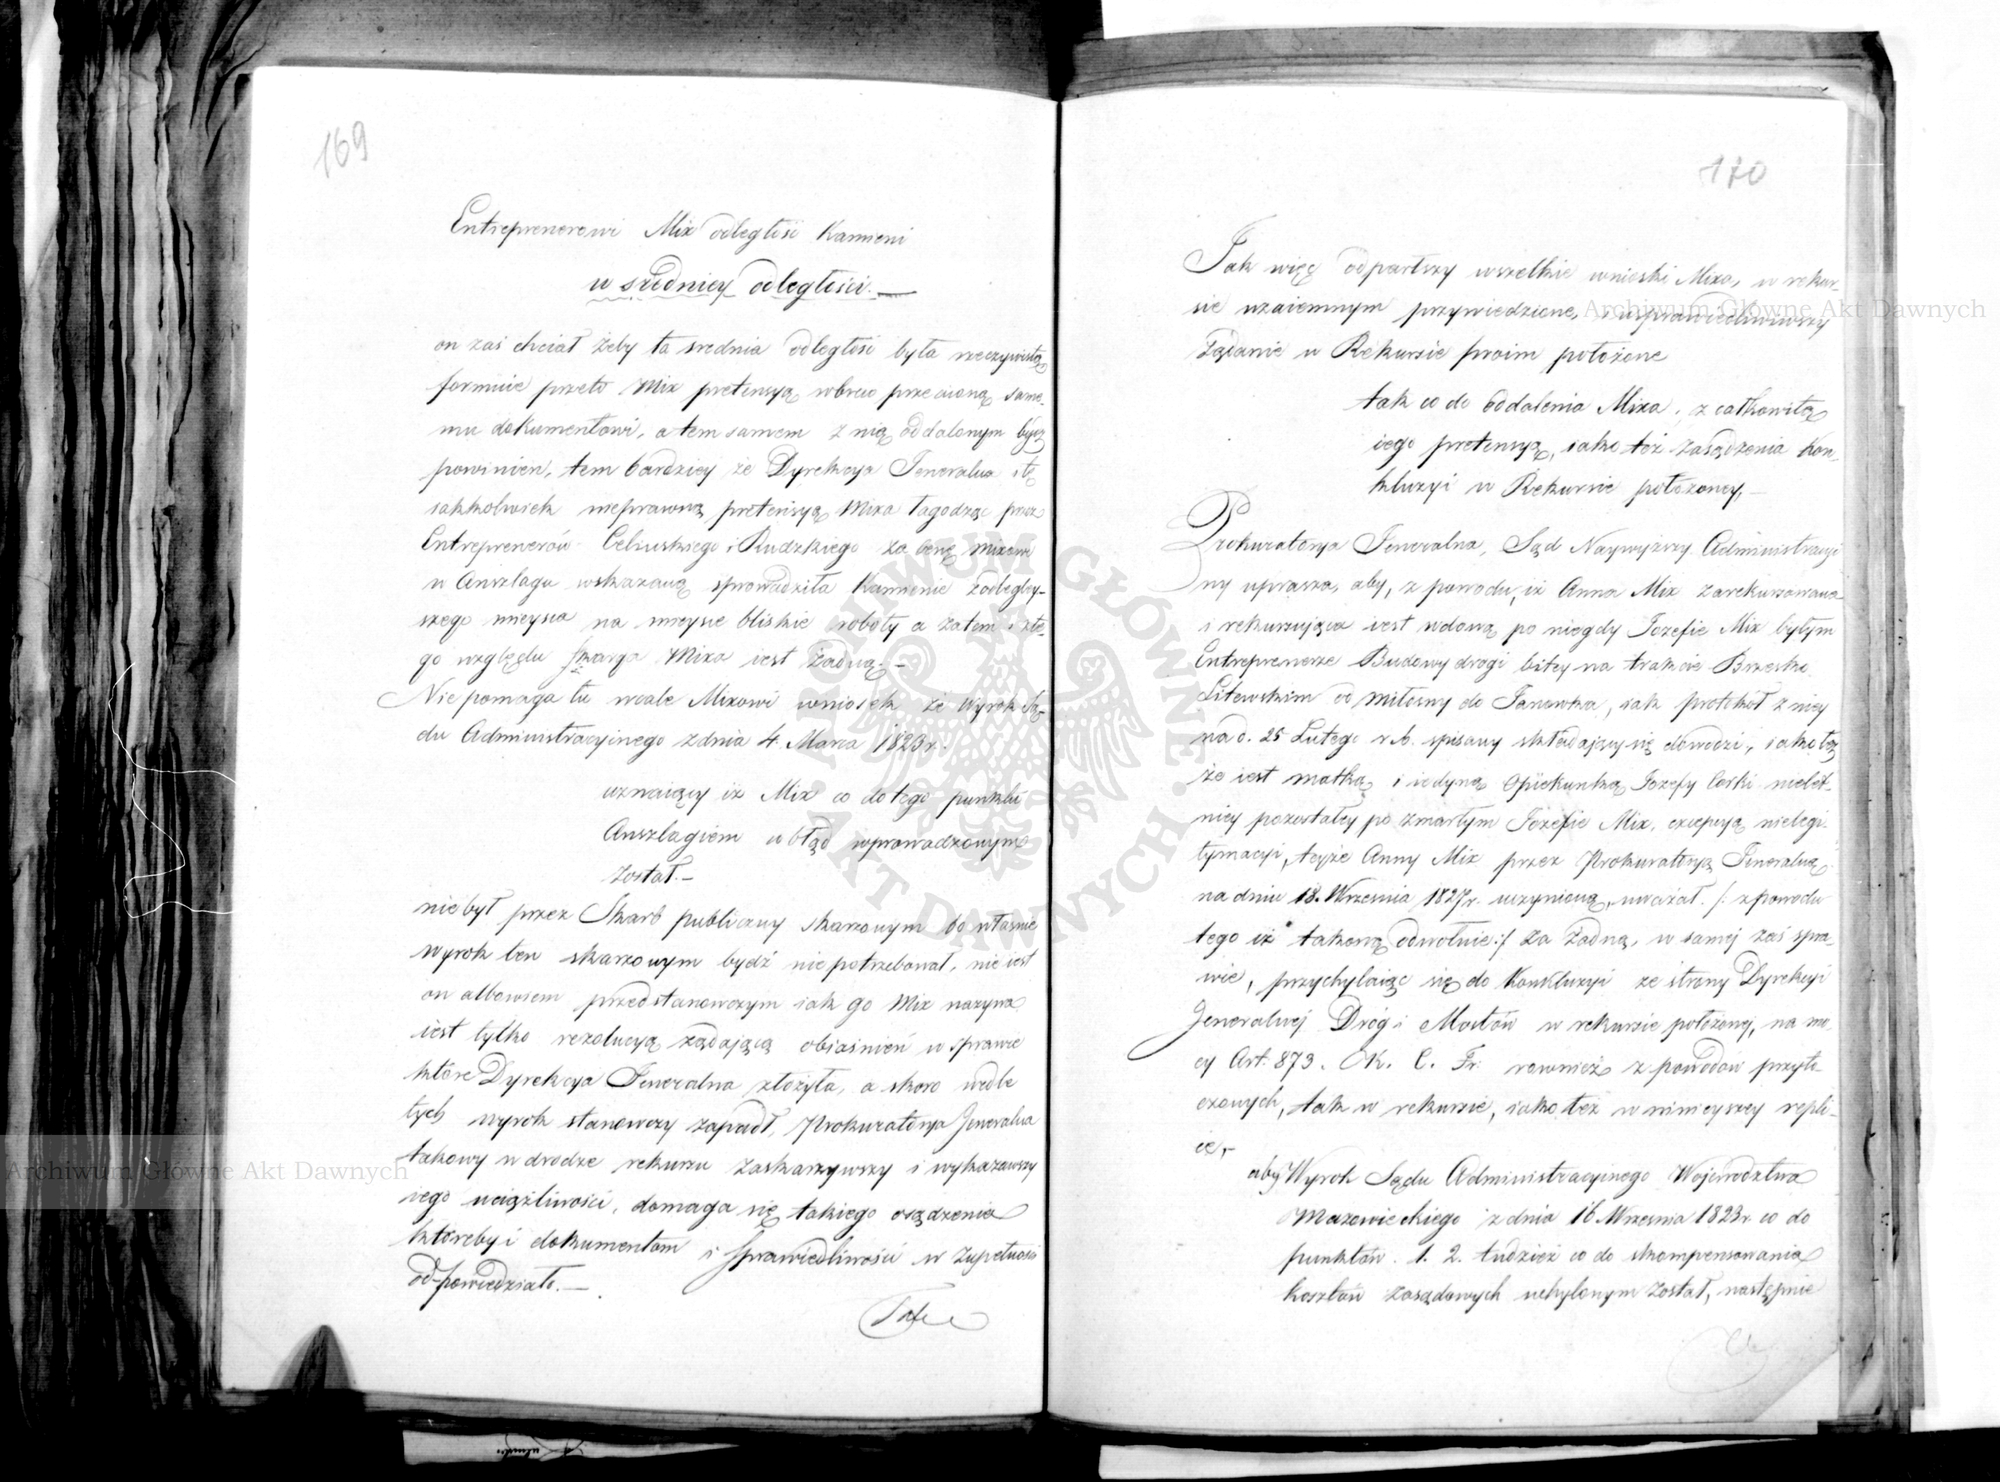 169
Entreprenerowi Mix odległość Kamieni
w średniey odległości. —
on zaś chciał żeby ta srednia odległość była rzeczywistą
formuie przeto Mix pretensyą wbrew przeciwną same-
mu dokumentowi, a tem samem z nią oddalonym być
powinien, tem bardziey że Dyrekcya Jeneralna tę
iakkolwiek nieprawną pretensyą Mixa łagodząc przez
Entreprenerów Celińskiego i Rudzkiego za cenę Mixowi
w Anszlagu wskazaną sprowadziła Kamienie z odległey-
szego mieysca na mieysce bliskie roboty a zatem i z te-
go względu skarga Mixa iest żadną. —
Nie pomaga tu wcale Mixowi wniosek że Wyrok Są-
du Administracyinego z dnia 4. Marca 1823 r.
uznaiący iż Mix co do tego punktu
Anszlagiem w błąd wprowadzonym
został. —
nie był przez Skarb publiczny skarzonym bo właśnie
wyrok ten skarzonym bydź nie potrzebował, nie iest
on albowiem przedstanowczym iak go Mix nazywa
iest tylko rezolucyą żądającą obiaśnień w sprawie
które Dyrekcya Jeneralna złożyła, a skoro wedle
tych wyrok stanowczy zapadł, Prokuratorya Jeneralna
takowy w drodze rekursu zaskarzywszy i wykazawszy
iego uciążliwości, domaga się takiego osądzenia
któreby i dokumentom i sprawiedliwości w zupełności
odpowiedziało. —
Tak
170
Tak więc odparłszy wszelkie wnioski Mixa, w rekur-
sie wzaiemnym przywiedzione, i usprawiedliwiwszy
Żądanie w Rekursie swoim położone
tak co do oddalenia Mixa, z całkowitą
iego pretensyą, iako też zasądzenia Kon-
kluzyi w Rekursie położoney, —
Prokuratorya Jeneralna, Sąd Naywyższy Administracyi
ny uprasza, aby, z powodu, iż Anna Mix zarekursowana
i rekursująca iest wdową po niegdy Jozefie Mix byłym
Entreprenerze Budowy drogi bitey na trakcie Brzesko
Litewskim od Miłosny do Janowka, iak protokół z niey
na d. 25 Lutego r. b. spisany składający się dowodzi, iako też
że iest matką i iedyną Opiekunką Jozefy Corki nielet-
niey pozostałey po zmarłym Jozefie Mix, excepcyą nielegi-
tymacyi, teyże Anny Mix przez Prokuratoryą Jeneralną
na dniu 18. Września 1827 r. uczynioną, uważał /: z powodu
tego iż takową odwołuie :/ za żadną, w samej zaś spra-
wie, przychylaiąc się do Konkluzyi ze strony Dyrekcyi
Jeneralnej Dróg i Mostów w rekursie położonej, na mo-
cy Art. 873. K. C. Fr. rownież z powodów przyto-
czonych, tak w rekursie, iako też w ninieyszey repli-
ce, —
aby Wyrok Sądu Administracyinego Wojewodztwa
Mazowieckiego z dnia 16 Września 1823 r. co do
punktów. 1. 2. tudzież co do skompensowania
kosztów zasądowych uchylonym został, następnie
Archiwum Główne Akt Dawnych
Archiwum Główne Akt Dawnych
ARCHIWUM GŁÓWNE AKT DAWNYCH